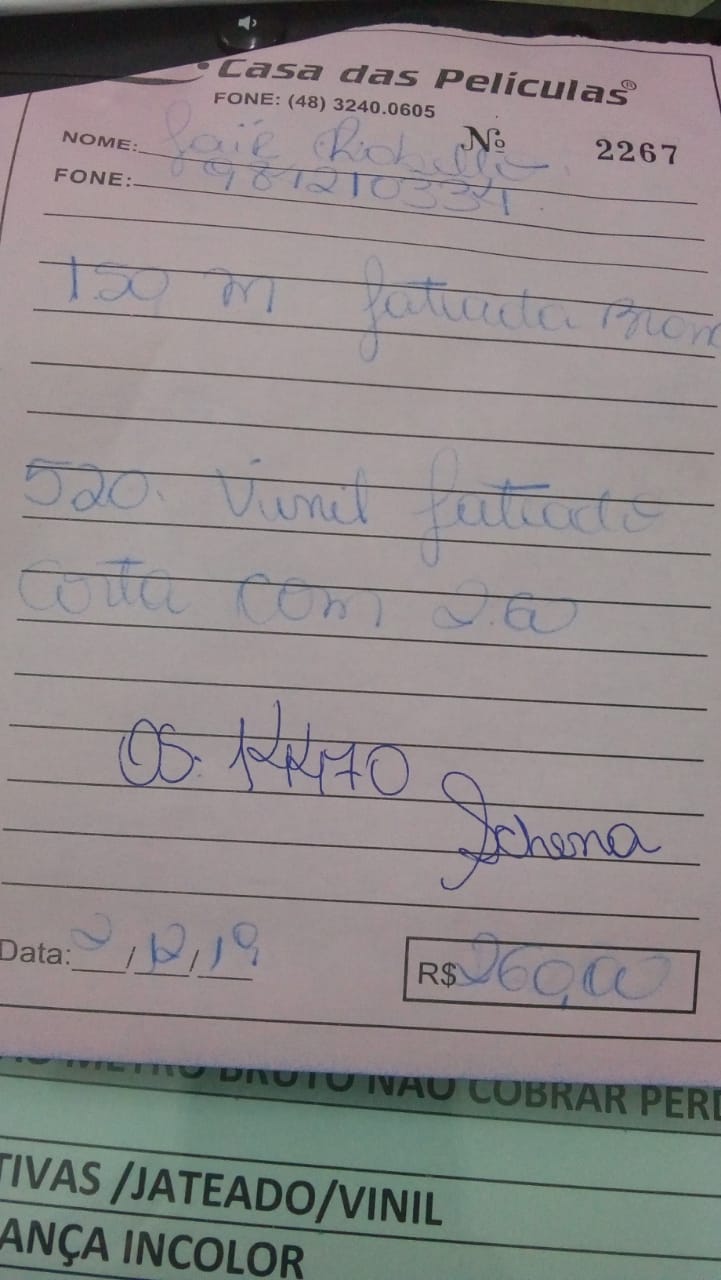 Casa das Películas®
FONE: (48) 3240.0605
Nº 2267
NOME: Jair
FONE: 981210334
150 m fatiada Bron
520. Viunil fatiado
Corta com 2.00
OS. 14470
Schena
Data: 2 / 12 / 19
R$ 260,00
METRO BRUTO NÃO COBRAR PERD
TIVAS /JATEADO/VINIL
ANÇA INCOLOR